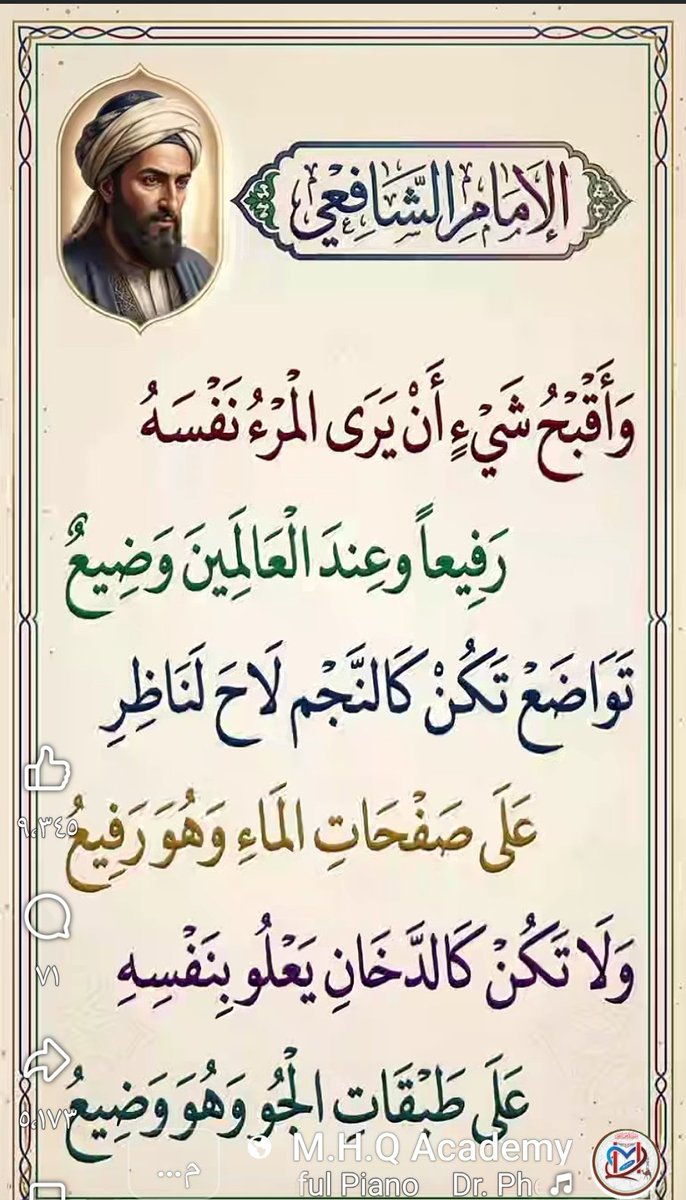 الإمام الشافعي
وَأَقْبَحُ شَيْءٍ أَنْ يَرَى الْمَرْءُ نَفْسَهُ
رَفِيعاً وعِندَ الْعَالَمِينَ وَضِيعٌ
تَوَاضَعْ تَكُنْ كَالنَّجْم لَاحَ لَنَاظِرِ
عَلَى صَفْحَاتِ الَماءِ وَهُوَ رَفِيعُ
وَلَا تَكُنْ كَالدَّخَانِ يَعْلُو بِنَفْسِهِ
عَلَى طَبْقَاتِ الْجُو وَهُوَ وَضِيعُ
٩،٣٤٥
٧١
٥،١٧٣
M.H.Q Academy
م...
ful Piano Dr. Ph